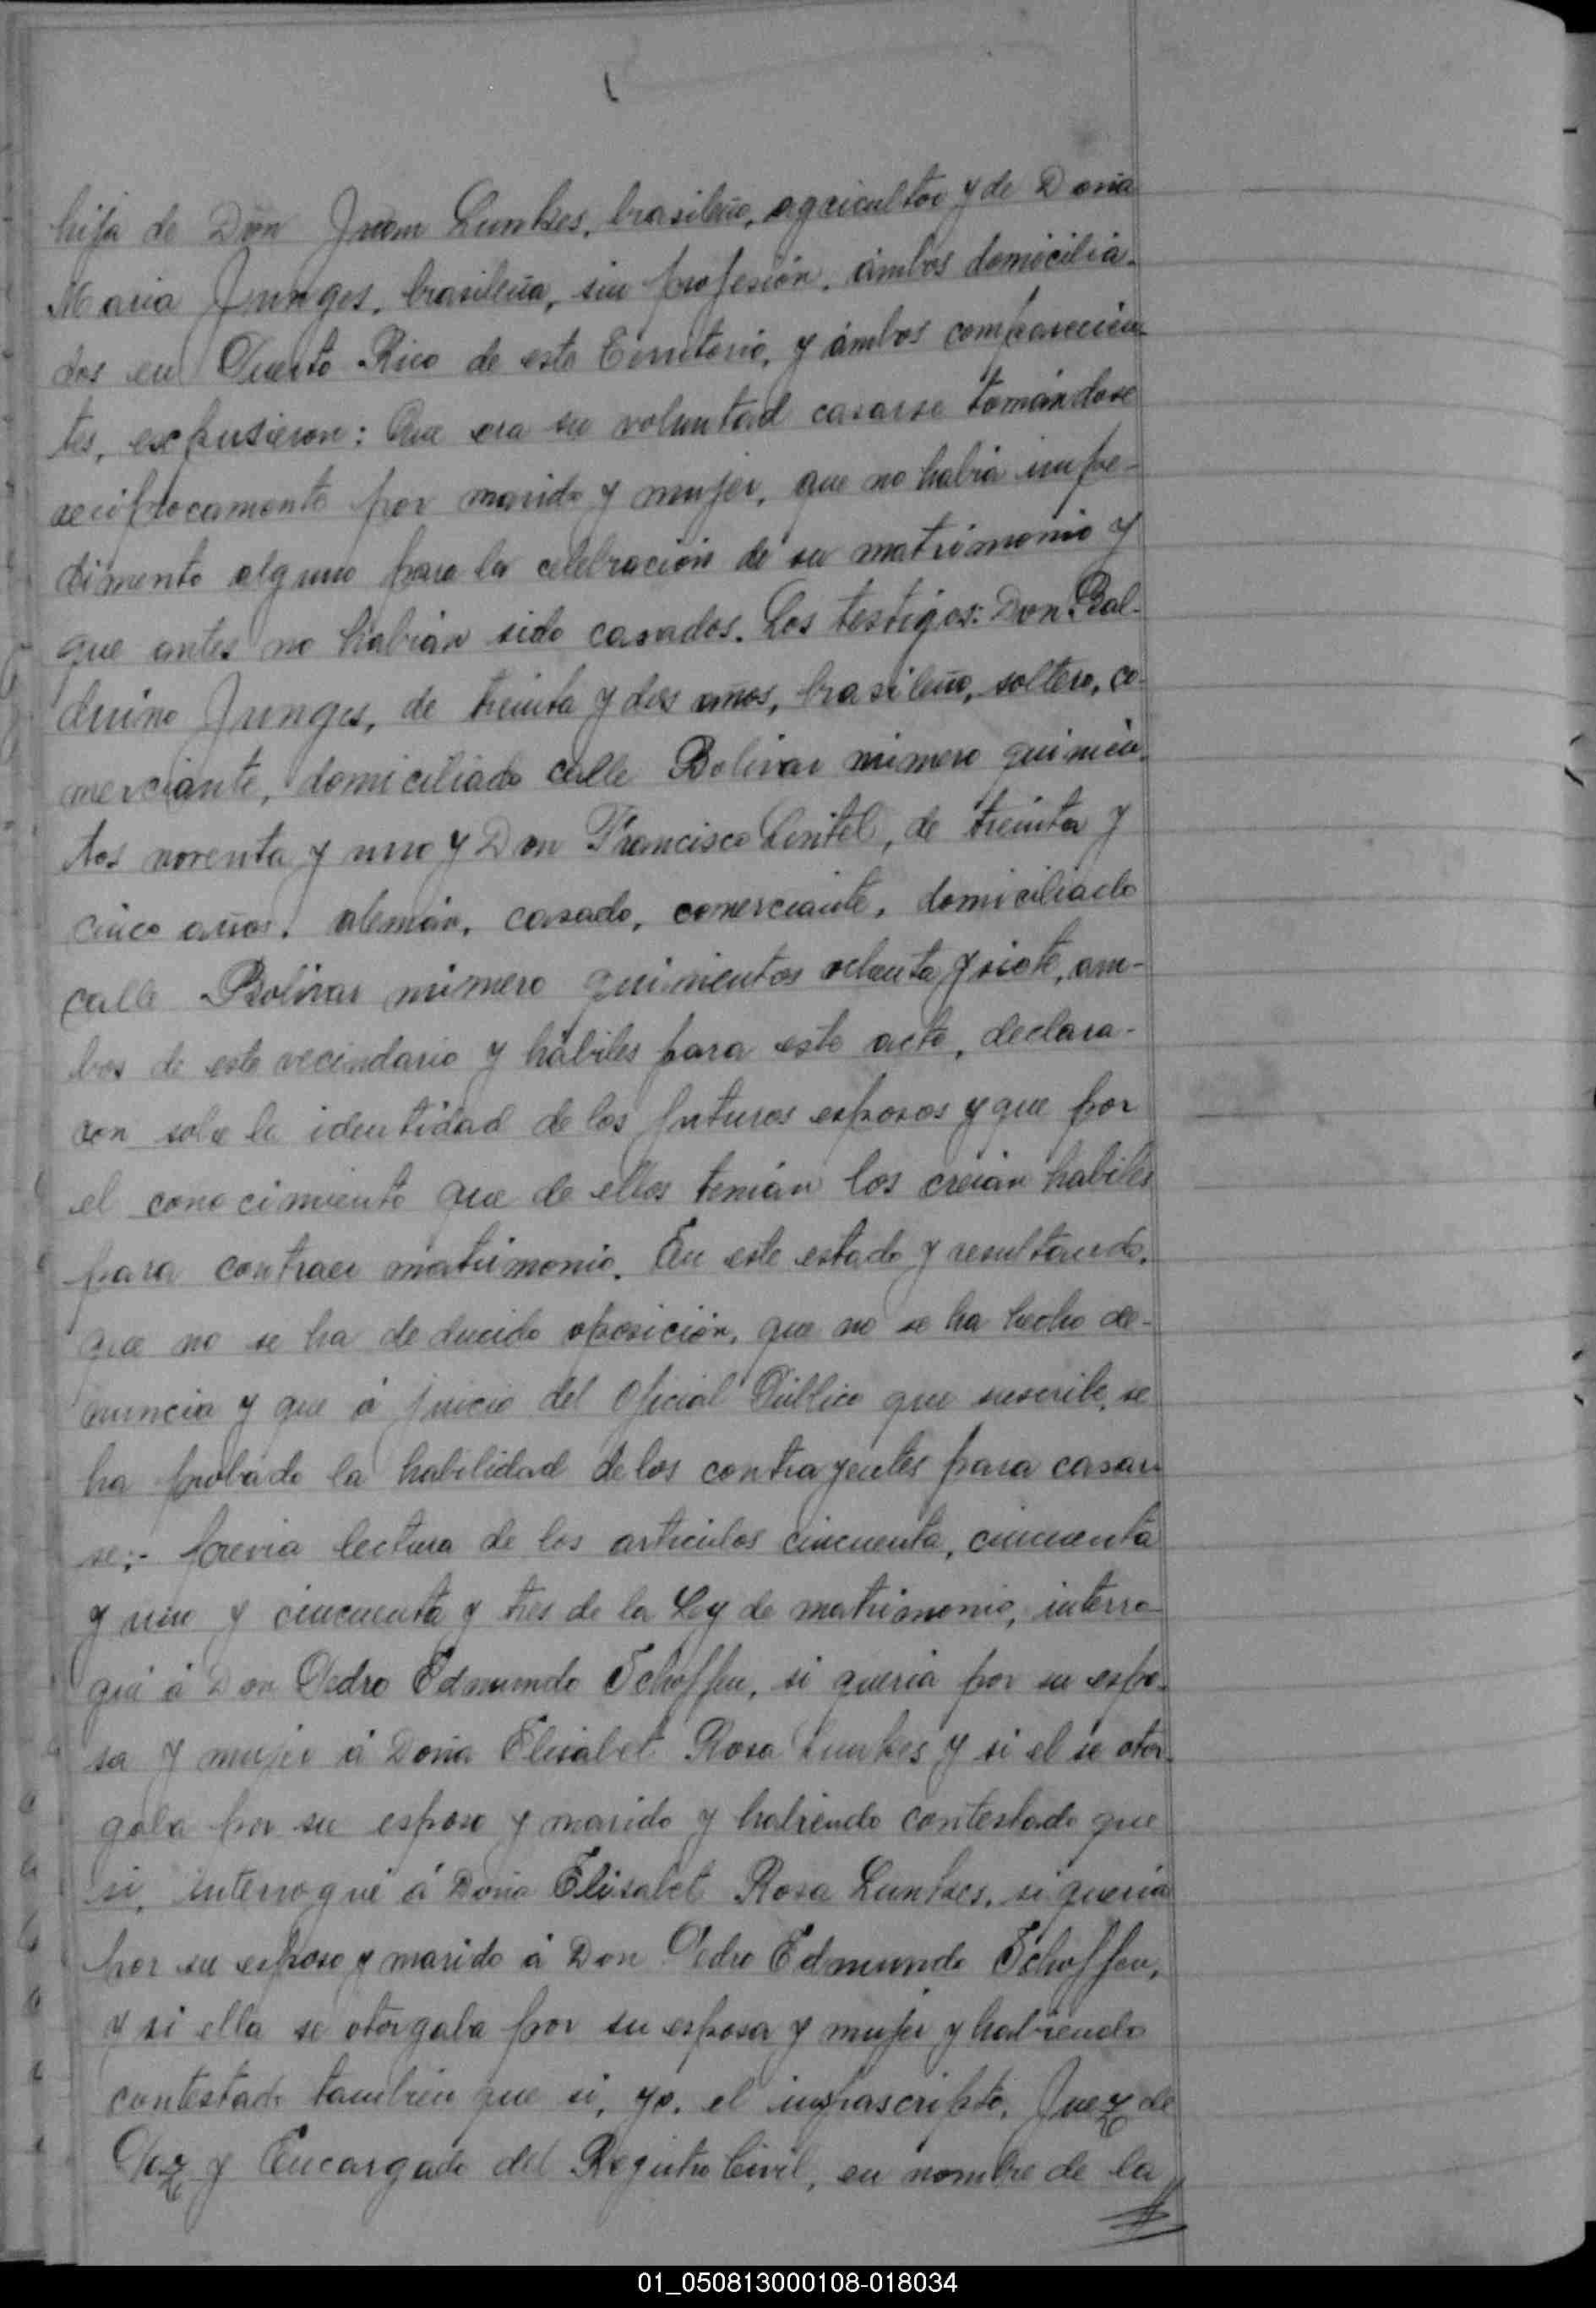 hija de Don Juan Lunkes, brasileño, agricultor y de Doña
Maria Junges, brasileña, sin profesión, ámbos domicilia-
dos en Puerto Rico de este Territorio, y ámbos comparecien-
tes, expusieron: Que era su voluntad casarse tomándose
recíprocamente por marido y mujer, que no habia impe-
dimento alguno para la celebración de su matrimonio y
que antes no habián sido casados. Los testigos: Don Bal-
duino Junges, de treinta y dos años, brasileño, soltero, co-
merciante, domiciliado calle Bolivar número quinien-
tos noventa y uno y Don Francisco Lentel, de treinta y
cinco años, alemán, casado, comerciante, domiciliado
calle Bolivar número quinientos ochenta y siete, am-
bos de este vecindario y hábiles para este acto, declara-
ron sobre la identidad de los futuros esposos y que por
el conocimiento que de ellos tenián los creián habiles
para contraer matrimonio. En este estado y resultando,
que no se ha deducido oposición, que no se ha hecho de-
nuncia y que á juicio del Oficial Público que suscribe, se
ha probado la habilidad de los contrayentes para casar-
se;- previa lectura de los articulos cincuenta, cincuenta
y uno y cincuenta y tres de la Ley de matrimonio, interro-
gué á Don Pedro Edmundo Schoffen, si queria por su espo-
sa y mujer á Doña Elisabet Rosa Lunkes y si el se otor-
gaba por su esposo y marido y habiendo contestado que
si, interrogué á Doña Elisabet Rosa Lunkes, si queria
por su esposo y marido á Don Pedro Edmundo Schoffen,
y si ella se otorgaba por su esposa y mujer y habiendo
contestado tambien que si, yo, el infrascripto, Juez de
Paz y Encargado del Registro Civil, en nombre de la
01_050813000108-018034